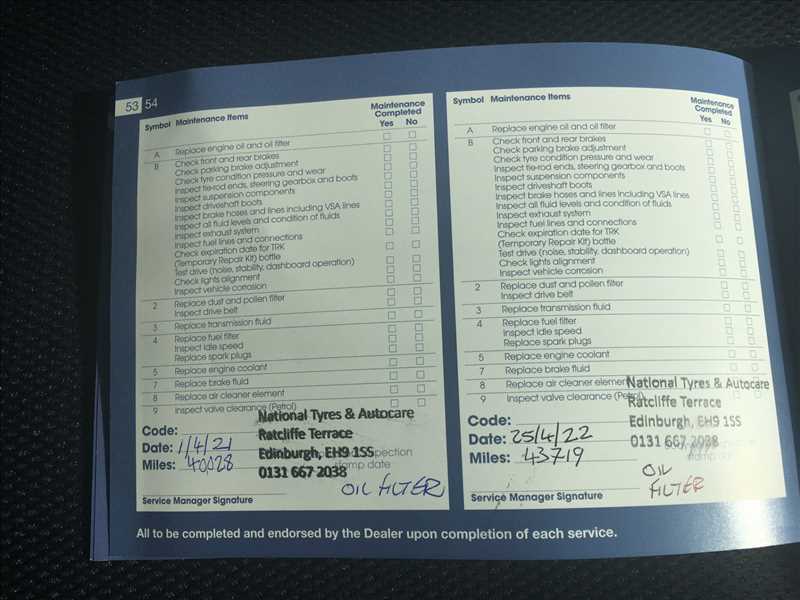 53 54
Symbol Maintenance Items Maintenance Completed Yes No
A Replace engine oil and oil filter
B Check front and rear brakes
Check parking brake adjustment
Check tyre condition pressure and wear
Inspect tie-rod ends, steering gearbox and boots
Inspect suspension components
Inspect driveshaft boots
Inspect brake hoses and lines including VSA lines
Inspect all fluid levels and condition of fluids
Inspect exhaust system
Inspect fuel lines and connections
Check expiration date for TRK
(Temporary Repair Kit) bottle
Test drive (noise, stability, dashboard operation)
Check lights alignment
Inspect vehicle corrosion
2 Replace dust and pollen filter
Inspect drive belt
3 Replace transmission fluid
4 Replace fuel filter
Inspect idle speed
Replace spark plugs
5 Replace engine coolant
7 Replace brake fluid
8 Replace air cleaner element
9 Inspect valve clearance (Petrol)
National Tyres & Autocare
Ratcliffe Terrace
Edinburgh, EH9 1SS
0131 667 2038
Code:
Date: 1/4/21
Miles: 40,028
stamp date
OIL FILTER
Service Manager Signature
Symbol Maintenance Items Maintenance Completed Yes No
A Replace engine oil and oil filter
B Check front and rear brakes
Check parking brake adjustment
Check tyre condition pressure and wear
Inspect tie-rod ends, steering gearbox and boots
Inspect suspension components
Inspect driveshaft boots
Inspect brake hoses and lines including VSA lines
Inspect all fluid levels and condition of fluids
Inspect exhaust system
Inspect fuel lines and connections
Check expiration date for TRK
(Temporary Repair Kit) bottle
Test drive (noise, stability, dashboard operation)
Check lights alignment
Inspect vehicle corrosion
2 Replace dust and pollen filter
Inspect drive belt
3 Replace transmission fluid
4 Replace fuel filter
Inspect idle speed
Replace spark plugs
5 Replace engine coolant
7 Replace brake fluid
8 Replace air cleaner element
9 Inspect valve clearance (Petrol)
National Tyres & Autocare
Ratcliffe Terrace
Edinburgh, EH9 1SS
0131 667 2038
Code:
Date: 25/4/22
Miles: 43719
stamp date
OIL
FILTER
Service Manager Signature
All to be completed and endorsed by the Dealer upon completion of each service.